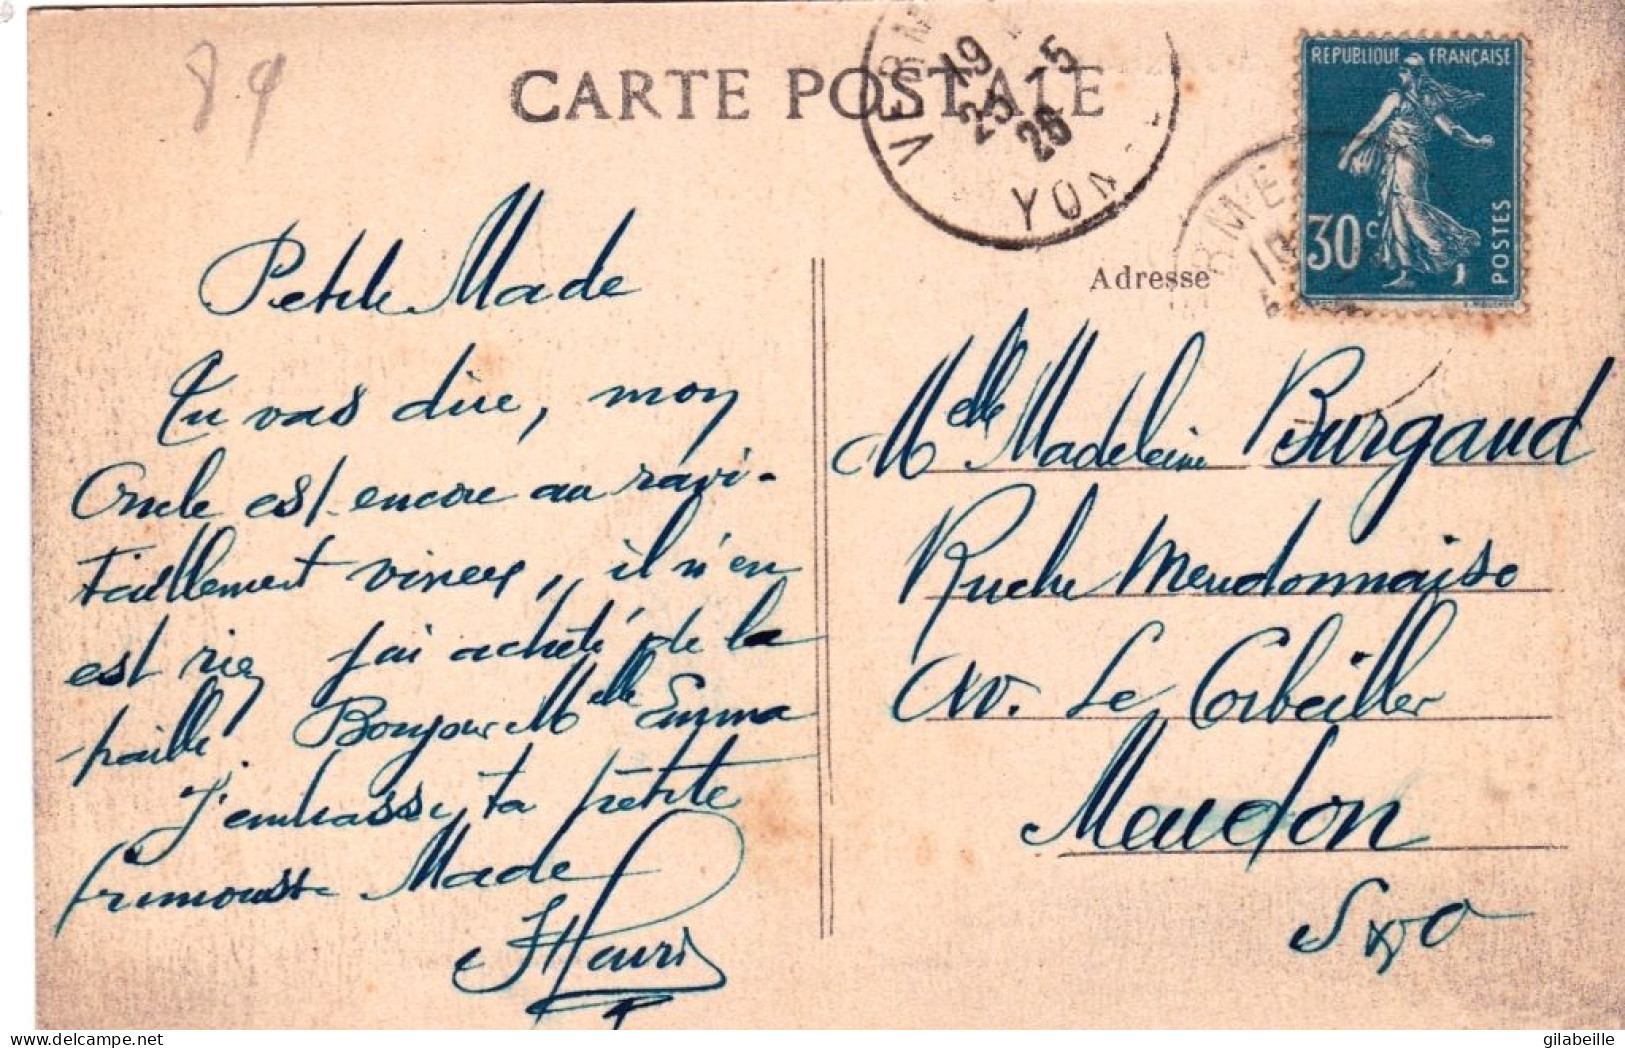 89
CARTE POSTALE
VERM
19
25-5
26
YON
RMEN
19
REPUBLIQUE FRANÇAISE
30c
POSTES
Petite Made
Tu vas dire, mon
Oncle est encore au ravi-
taillement vineux, il n'en
est rien j'ai acheté de la
paille. Bonjour Melle Emma
J'embrasse ta petite
frimousse Made
Henri
Adresse
Melle Madeleine Burgaud
Ruche Meudonnaise
Av. Le Corbeiller
Meudon
S x O
gilabeille